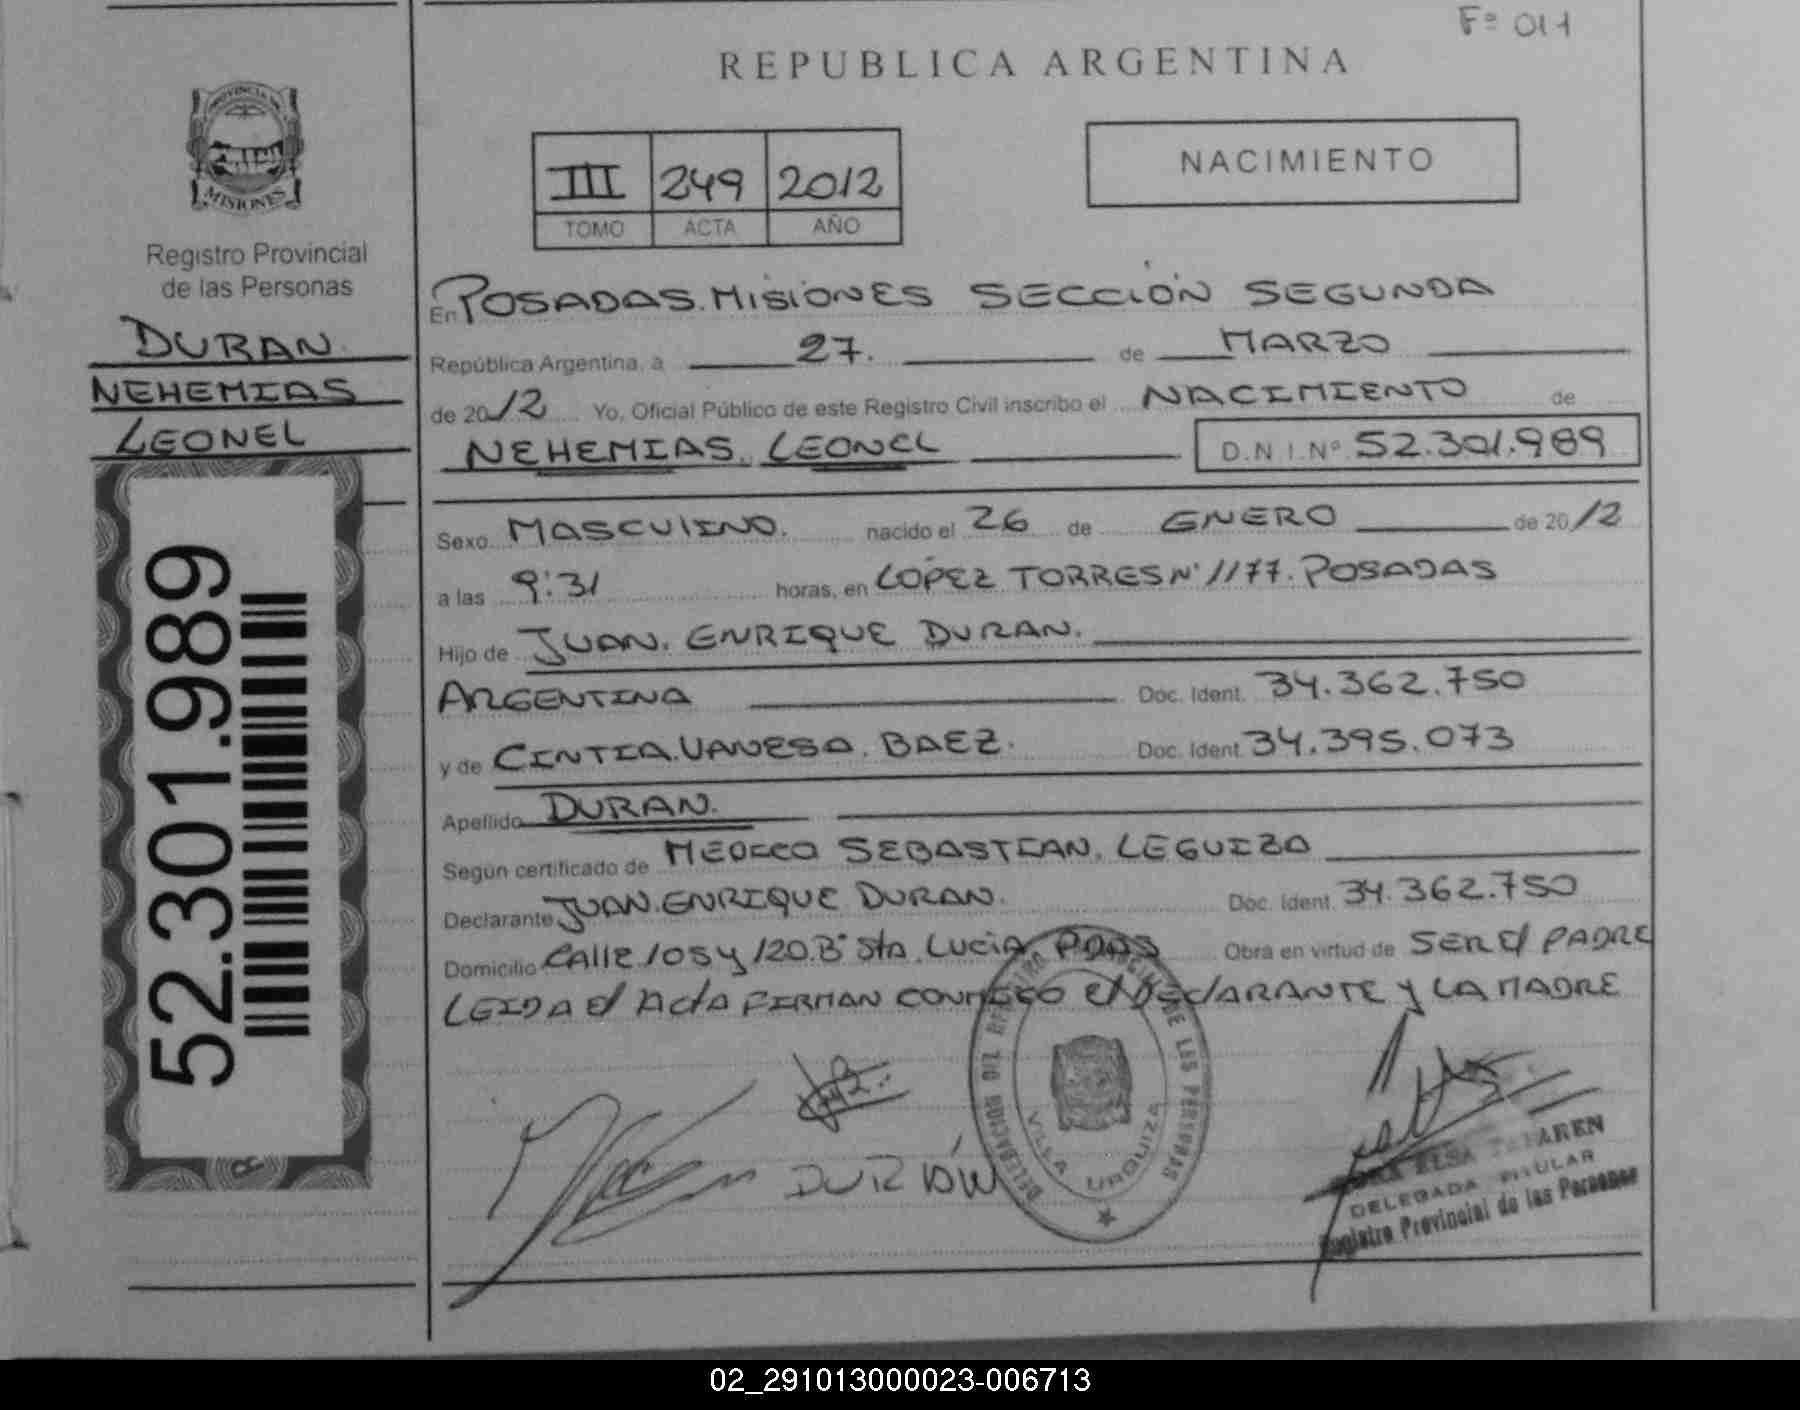 Fº 011
REPUBLICA ARGENTINA
PROVINCIA DE
MISIONES
Registro Provincial
de las Personas
DURAN
NEHEMIAS
LEONEL
52.301.989
III 249 2012
TOMO ACTA AÑO
NACIMIENTO
En POSADAS. MISIONES SECCIÓN SEGUNDA
República Argentina, a 27. de MARZO
de 2012 Yo, Oficial Público de este Registro Civil inscribo el NACIMIENTO de
NEHEMIAS. LEONEL D.N.I.Nº 52.301.989
Sexo MASCULINO. nacido el 26 de ENERO de 2012
a las 9:31 horas, en LÓPEZ TORRES Nº 1177. POSADAS
Hijo de JUAN. ENRIQUE DURAN.
ARGENTINA Doc. Ident. 34.362.750
y de CINTIA. VANESA. BAEZ. Doc. Ident. 34.395.073
Apellido DURAN.
Según certificado de MEDICO SEBASTIAN. LEGUIZA
Declarante JUAN. ENRIQUE DURAN. Doc. Ident. 34.362.750
Domicilio CAlle 105 y 120. Bº Sta. LUCIA PDAS Obra en virtud de SER El PADRE
LEIDA El ACtA FIRMAN CONMIGO El DEClARANTE Y LA MADRE
DURAN
DELEGACION DEL REGISTRO PROVINCIAL DE LAS PERSONAS
VILLA URQUIZA
ELSA
DELEGADA TITULAR
Registro Provincial de las Personas
02_291013000023-006713